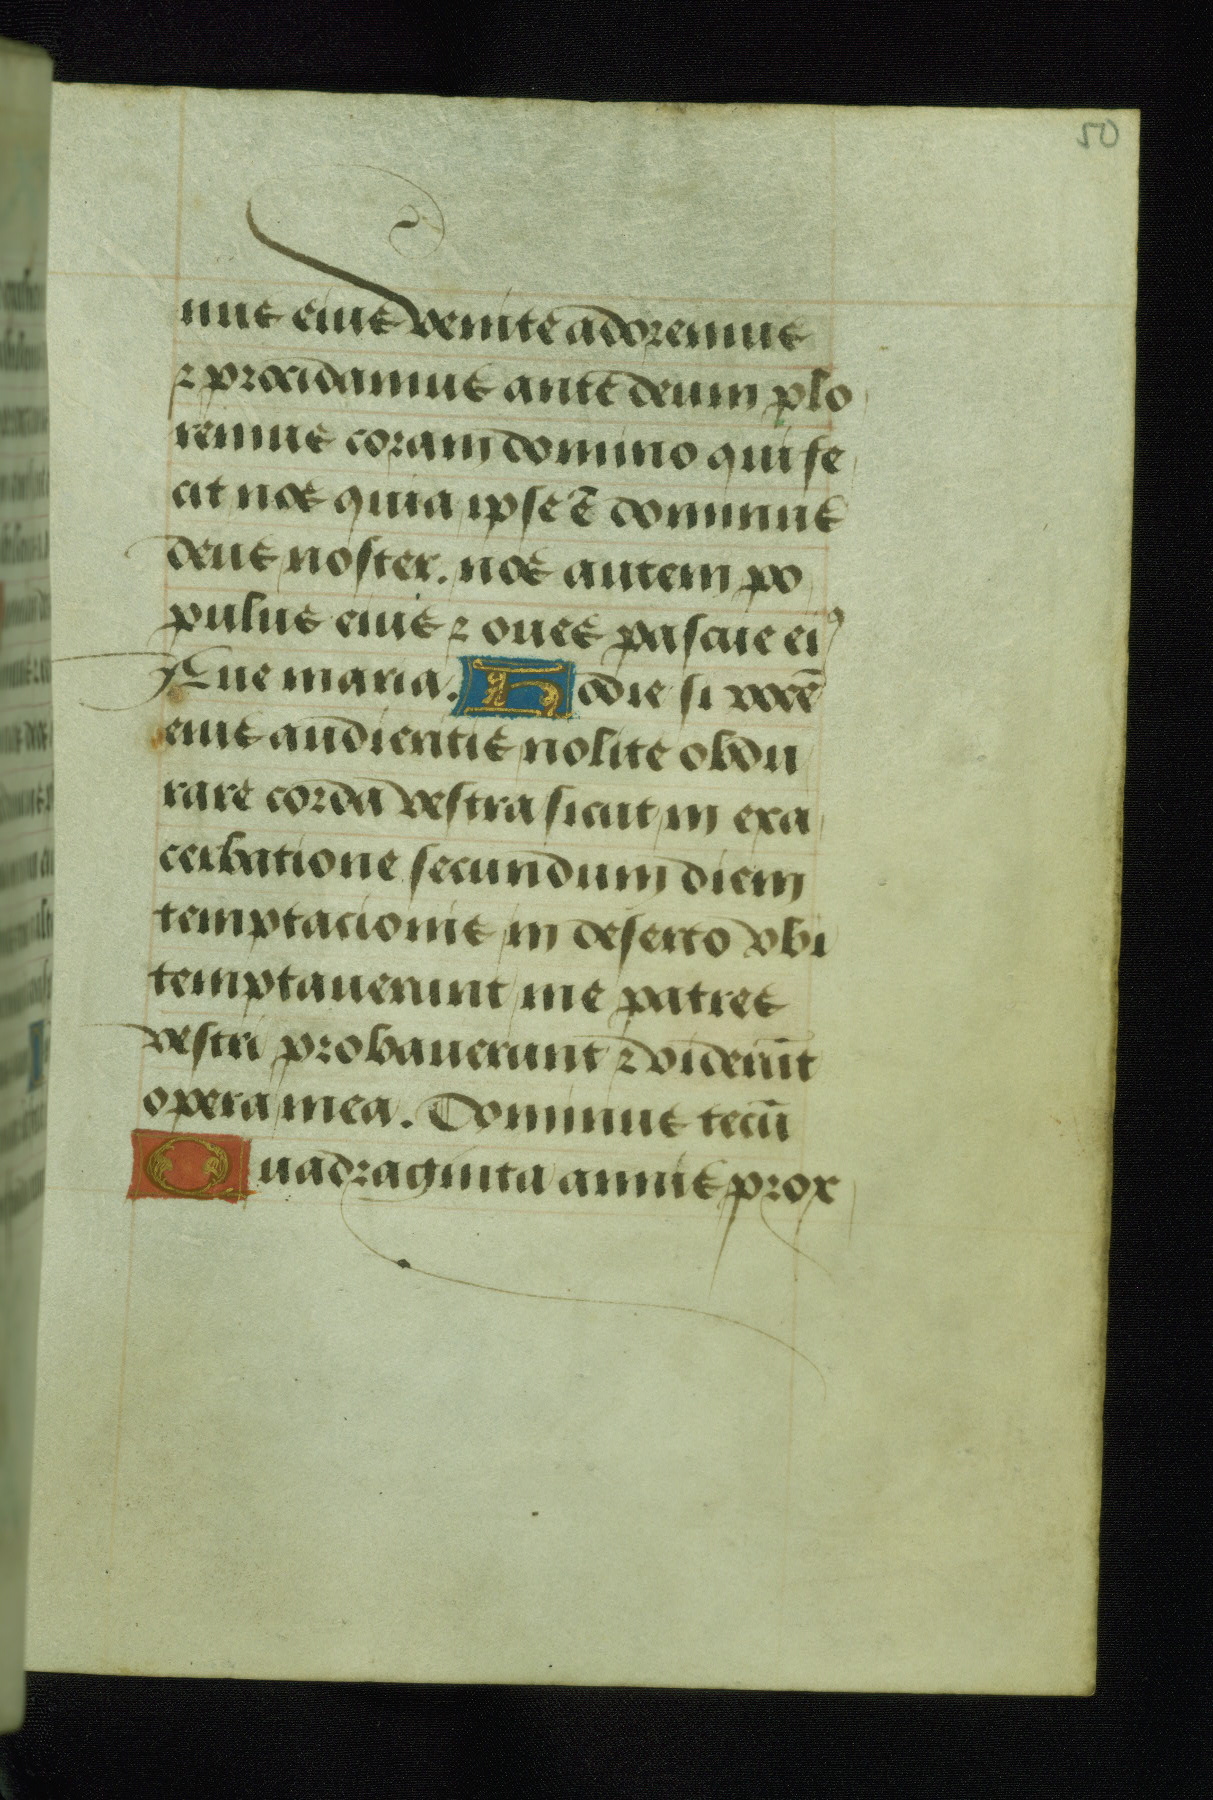 50
nus eius venite adoremus
⁊ procidamus ante deum plo
remus coram domino qui fe
cit nos quia ipse ē dominus
deus noster. nos autem po
pulus eius ⁊ oues pascue ei⁹
Aue maria. Hodie si vocē
eius audieritis nolite obdu
rare corda vestra sicut in exa
cerbatione secundum diem
temptacionis in deserto vbi
temptauerunt me patres
vestri probauerunt ⁊ viderūt
opera mea. Dominus tecū
Quadraginta annis prox